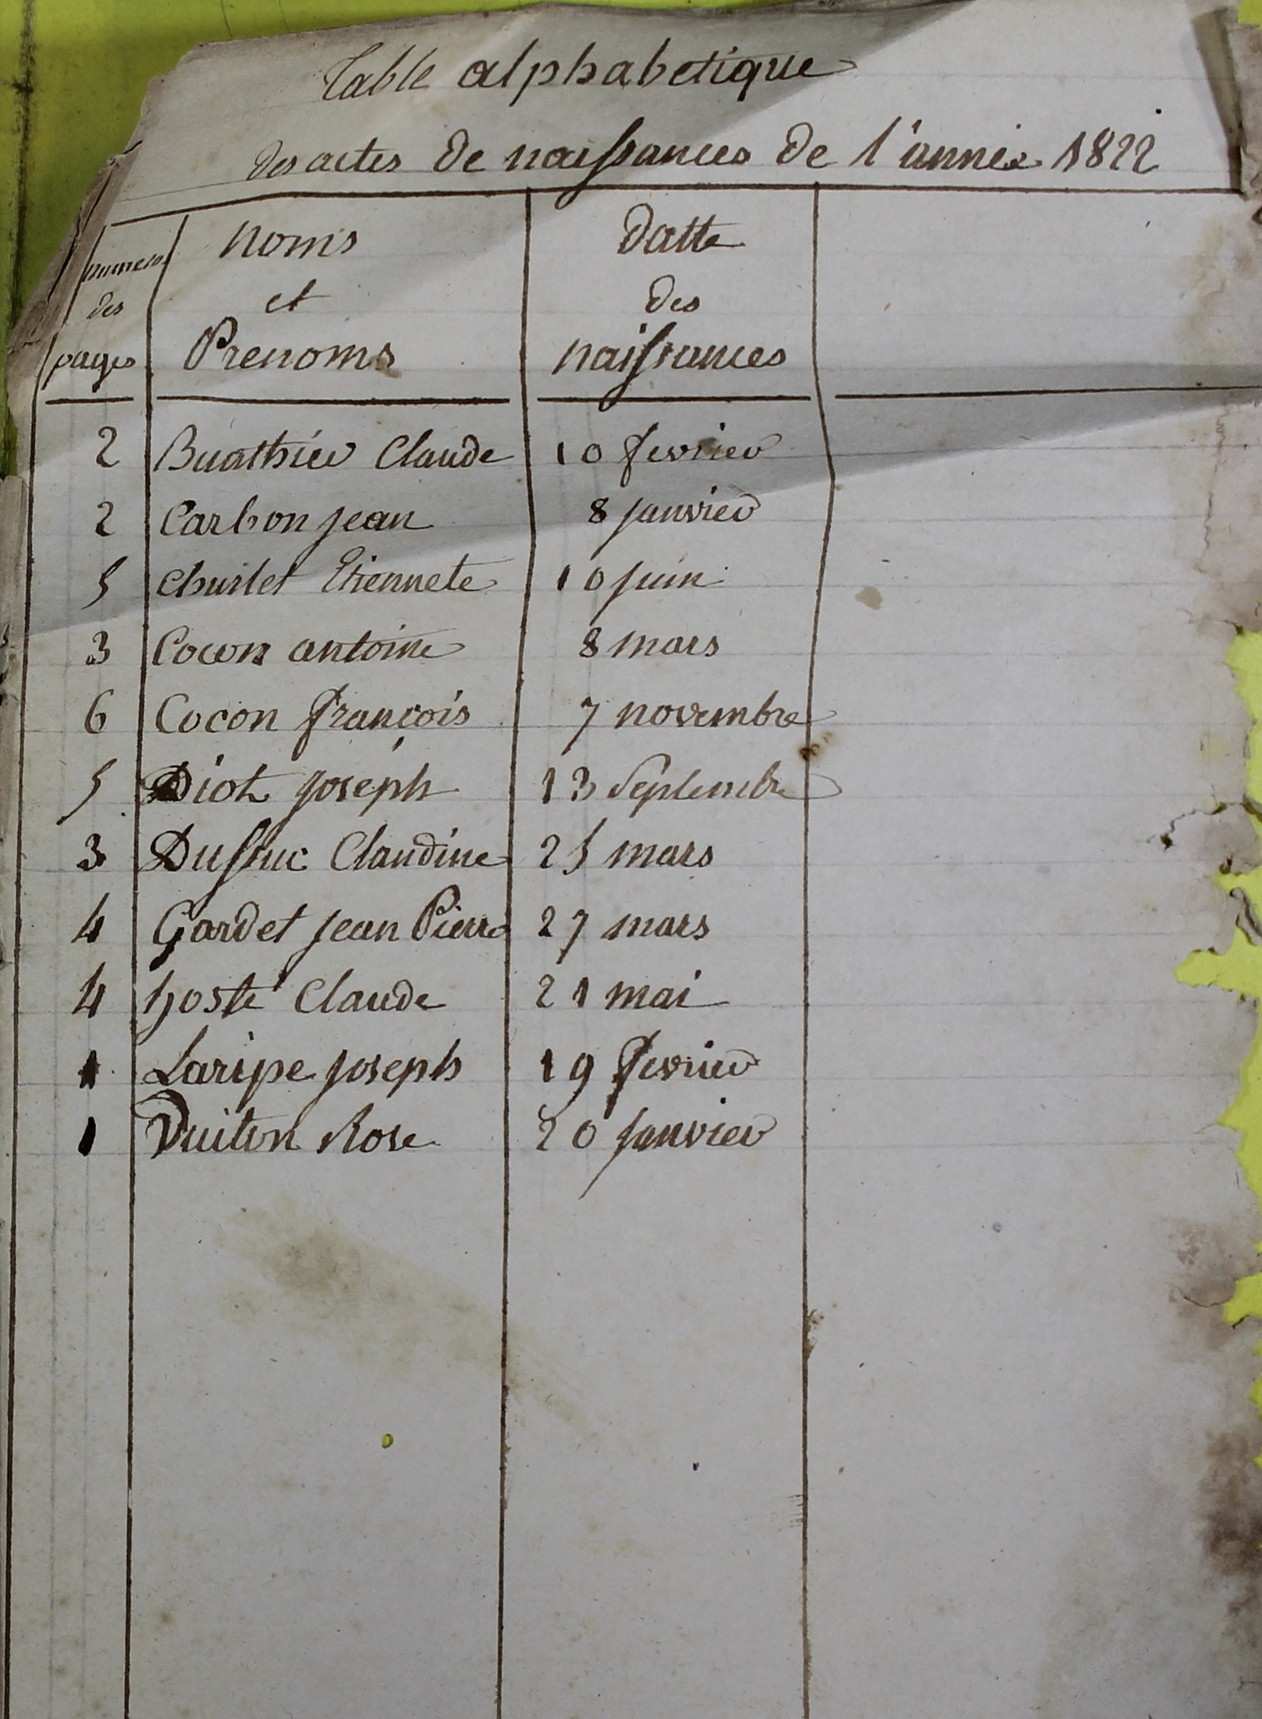 Table alphabetique
des actes de naissances de l'année 1822
numero des pages
noms et Prenoms
datte des naissances
2 Buathier Claude 10 fevrier
2 Carbon jean 8 janvier
5 Etiennete 10 juin
3 Cocon antoine 8 mars
6 Cocon françois 7 novembre
5 Diot joseph 13 Septembre
3 Dussuc Claudine 25 mars
4 Gardet jean Pierre 27 mars
4 hosté Claude 21 mai
1 Laripe joseph 19 fevrier
1 Vuiton Rose 20 janvier